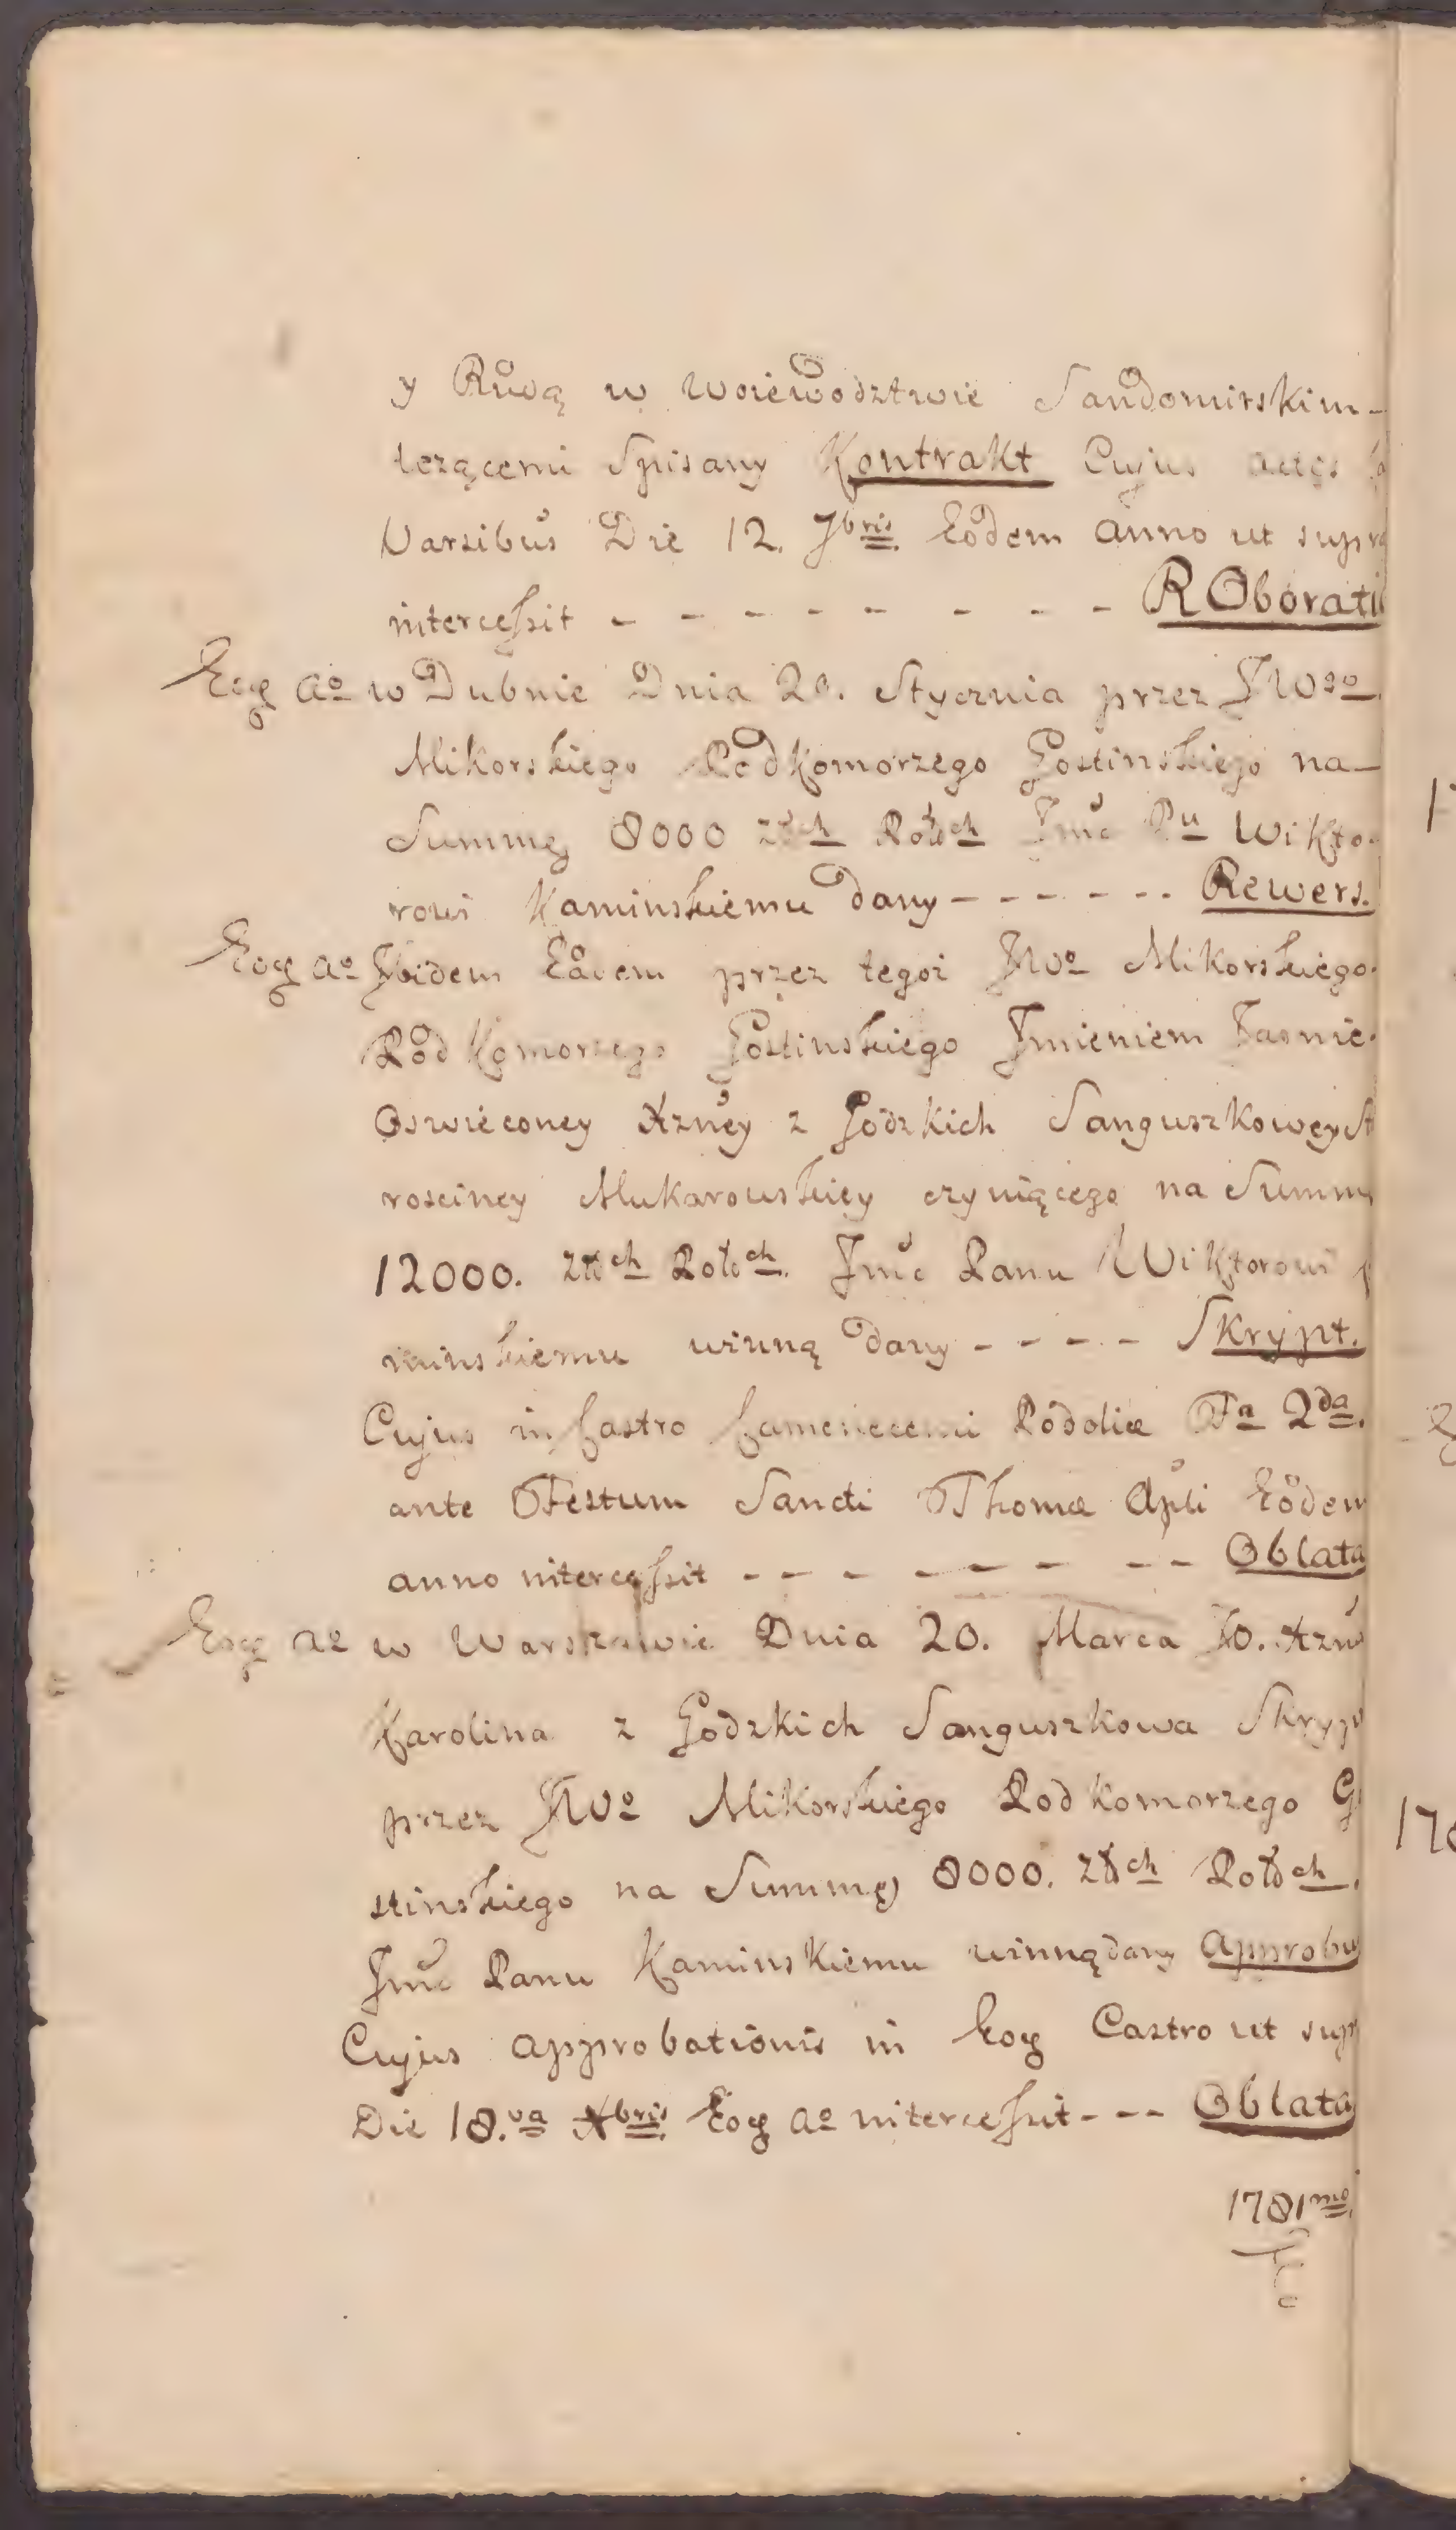 y Rudą w Woiewodztwie Sandomirskim
leżącemi Spisany Kontrakt Cujus actis
Varsibus Die 12. 7bris Eodem anno ut supra
intercessit - - - - - - - - ROborati
Eoq ao w Dubnie Dnia 20. Stycznia przez JWgo
Mikorskiego PodKomorzego Gostinskiego na
Summę 8000 złch Polch Jmć Pu Wikto-
rowi Kaminskiemu dany - - - - - - Rewers.
Eoq ao Ibidem Eadem przez tegoż JWo Mikorskiego
PodKomorzego Gostinskiego Jmieniem Jasnie
Oswieconey Xzney z Godzkich Sanguszkowey St
rosciney Mukarowskiey czyniącego na Summę
12000. złch Polch. Jmć Panu Wiktorowi
minskiemu winną dany - - - - Skrypt.
Cujus in Castro Camenecensi Podoliæ Fa 2da.
ante Festum Sancti Thomæ Apli Eodem
anno intercessit - - - - - - - - Oblata
Eoq ao w Warszawie Dnia 20. Marca JO. Xzna
Karolina z Godzkich Sanguszkowa Skryp
przez JWo Mikorskiego PodKomorzego G
stinskiego na Summę 8000. złch Polch.
Jmć Panu Kaminskiemu winną dany approbu
Cujus approbationis in Eoq Castro ut supr
Die 18.va Xbris Eoq ao intercessit - - - Oblata
1781mo